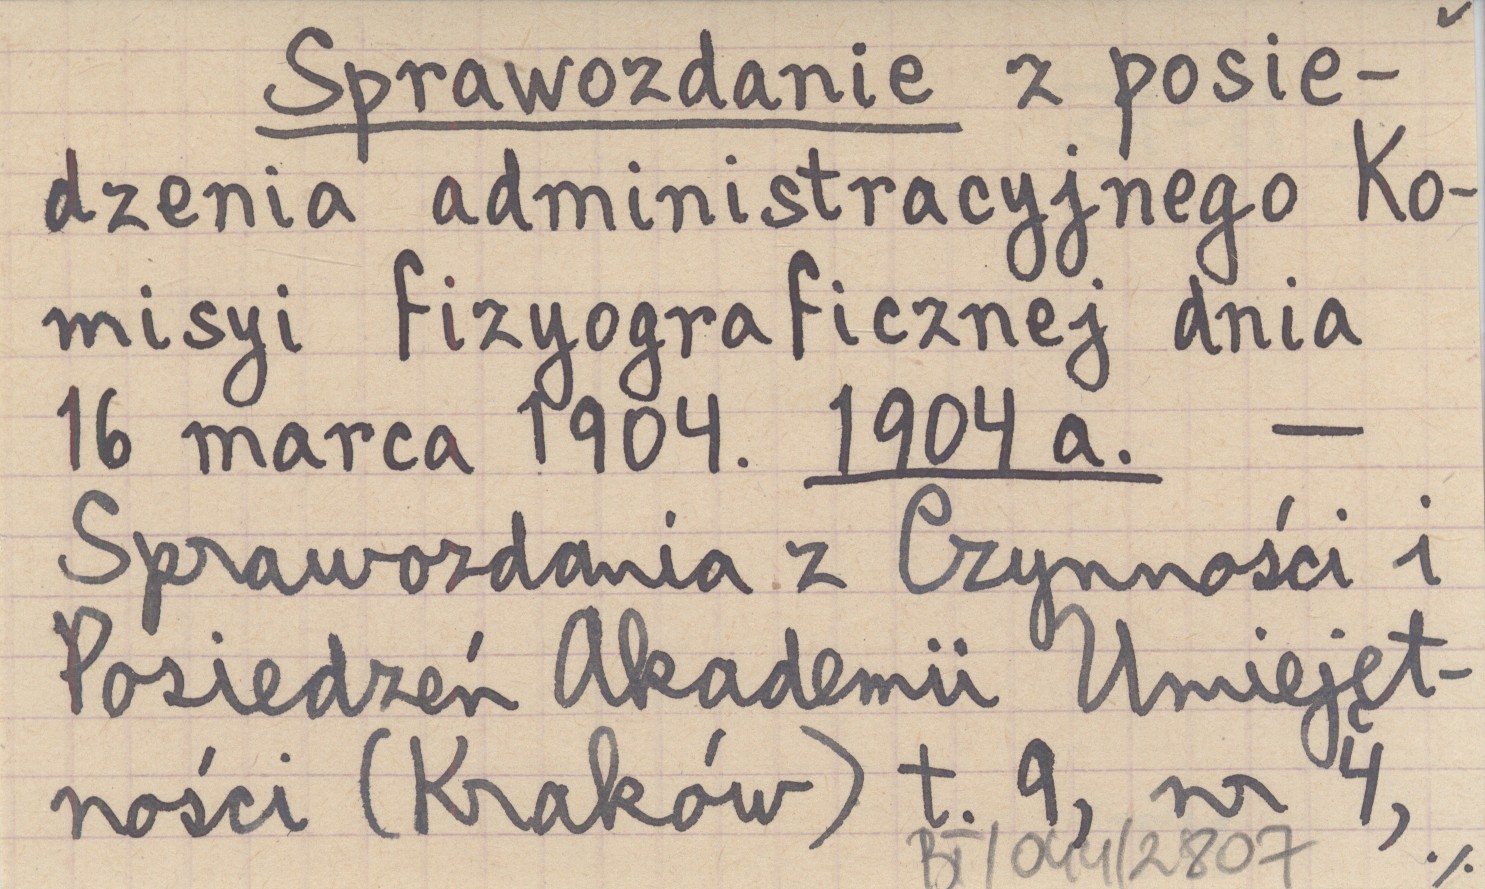 Sprawozdanie z posie-
dzenia administracyjnego Ko-
misyi fizyograficznej dnia
16 marca 1904. 1904 a. —
Sprawozdania z Czynności i
Posiedzeń Akademii Umiejęt-
ności (Kraków) t. 9, nr 4,
BI/044/2807 ./.